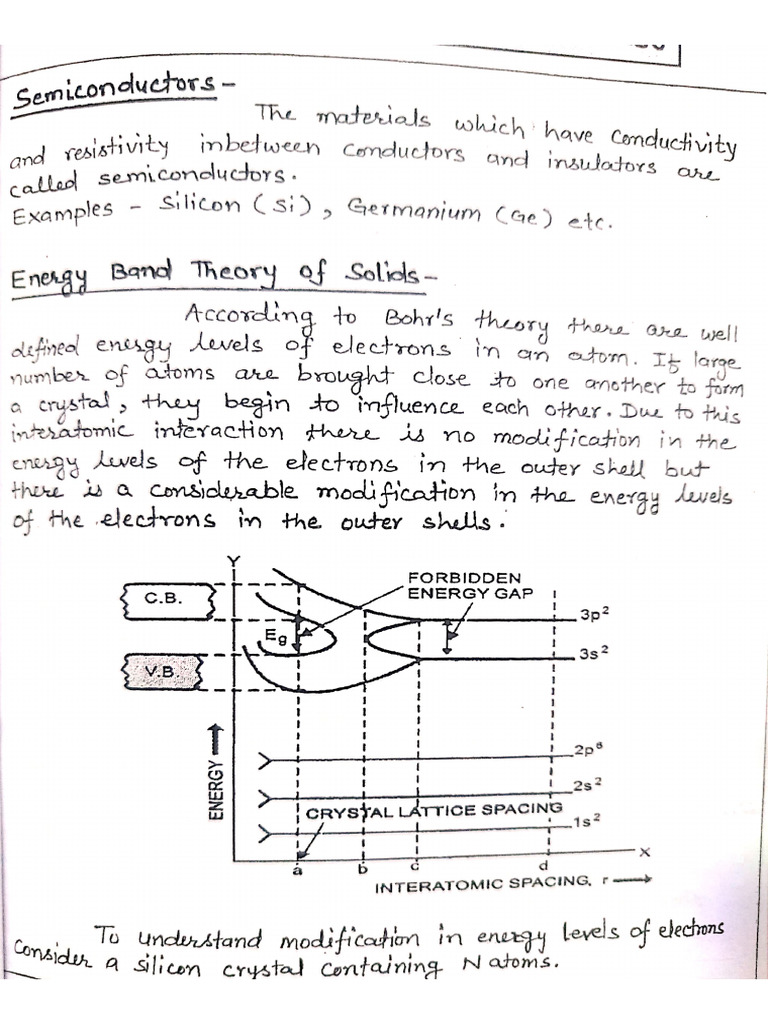 Semiconductors -
The materials which have conductivity
and resistivity inbetween conductors and insulators are
called semiconductors.
Examples - Silicon (Si), Germanium (Ge) etc.
Energy Band Theory of Solids -
According to Bohr's theory there are well
defined energy levels of electrons in an atom. If large
number of atoms are brought close to one another to form
a crystal, they begin to influence each other. Due to this
interatomic interaction there is no modification in the
energy levels of the electrons in the outer shell but
there is a considerable modification in the energy levels
of the electrons in the outer shells.
Y
FORBIDDEN
ENERGY GAP
C.B.
3p²
Eg
3s²
V.B.
2p⁶
ENERGY
2s²
CRYSTAL LATTICE SPACING
1s²
X
a b c d
INTERATOMIC SPACING, r
To understand modification in energy levels of electrons
Consider a silicon crystal containing N atoms.